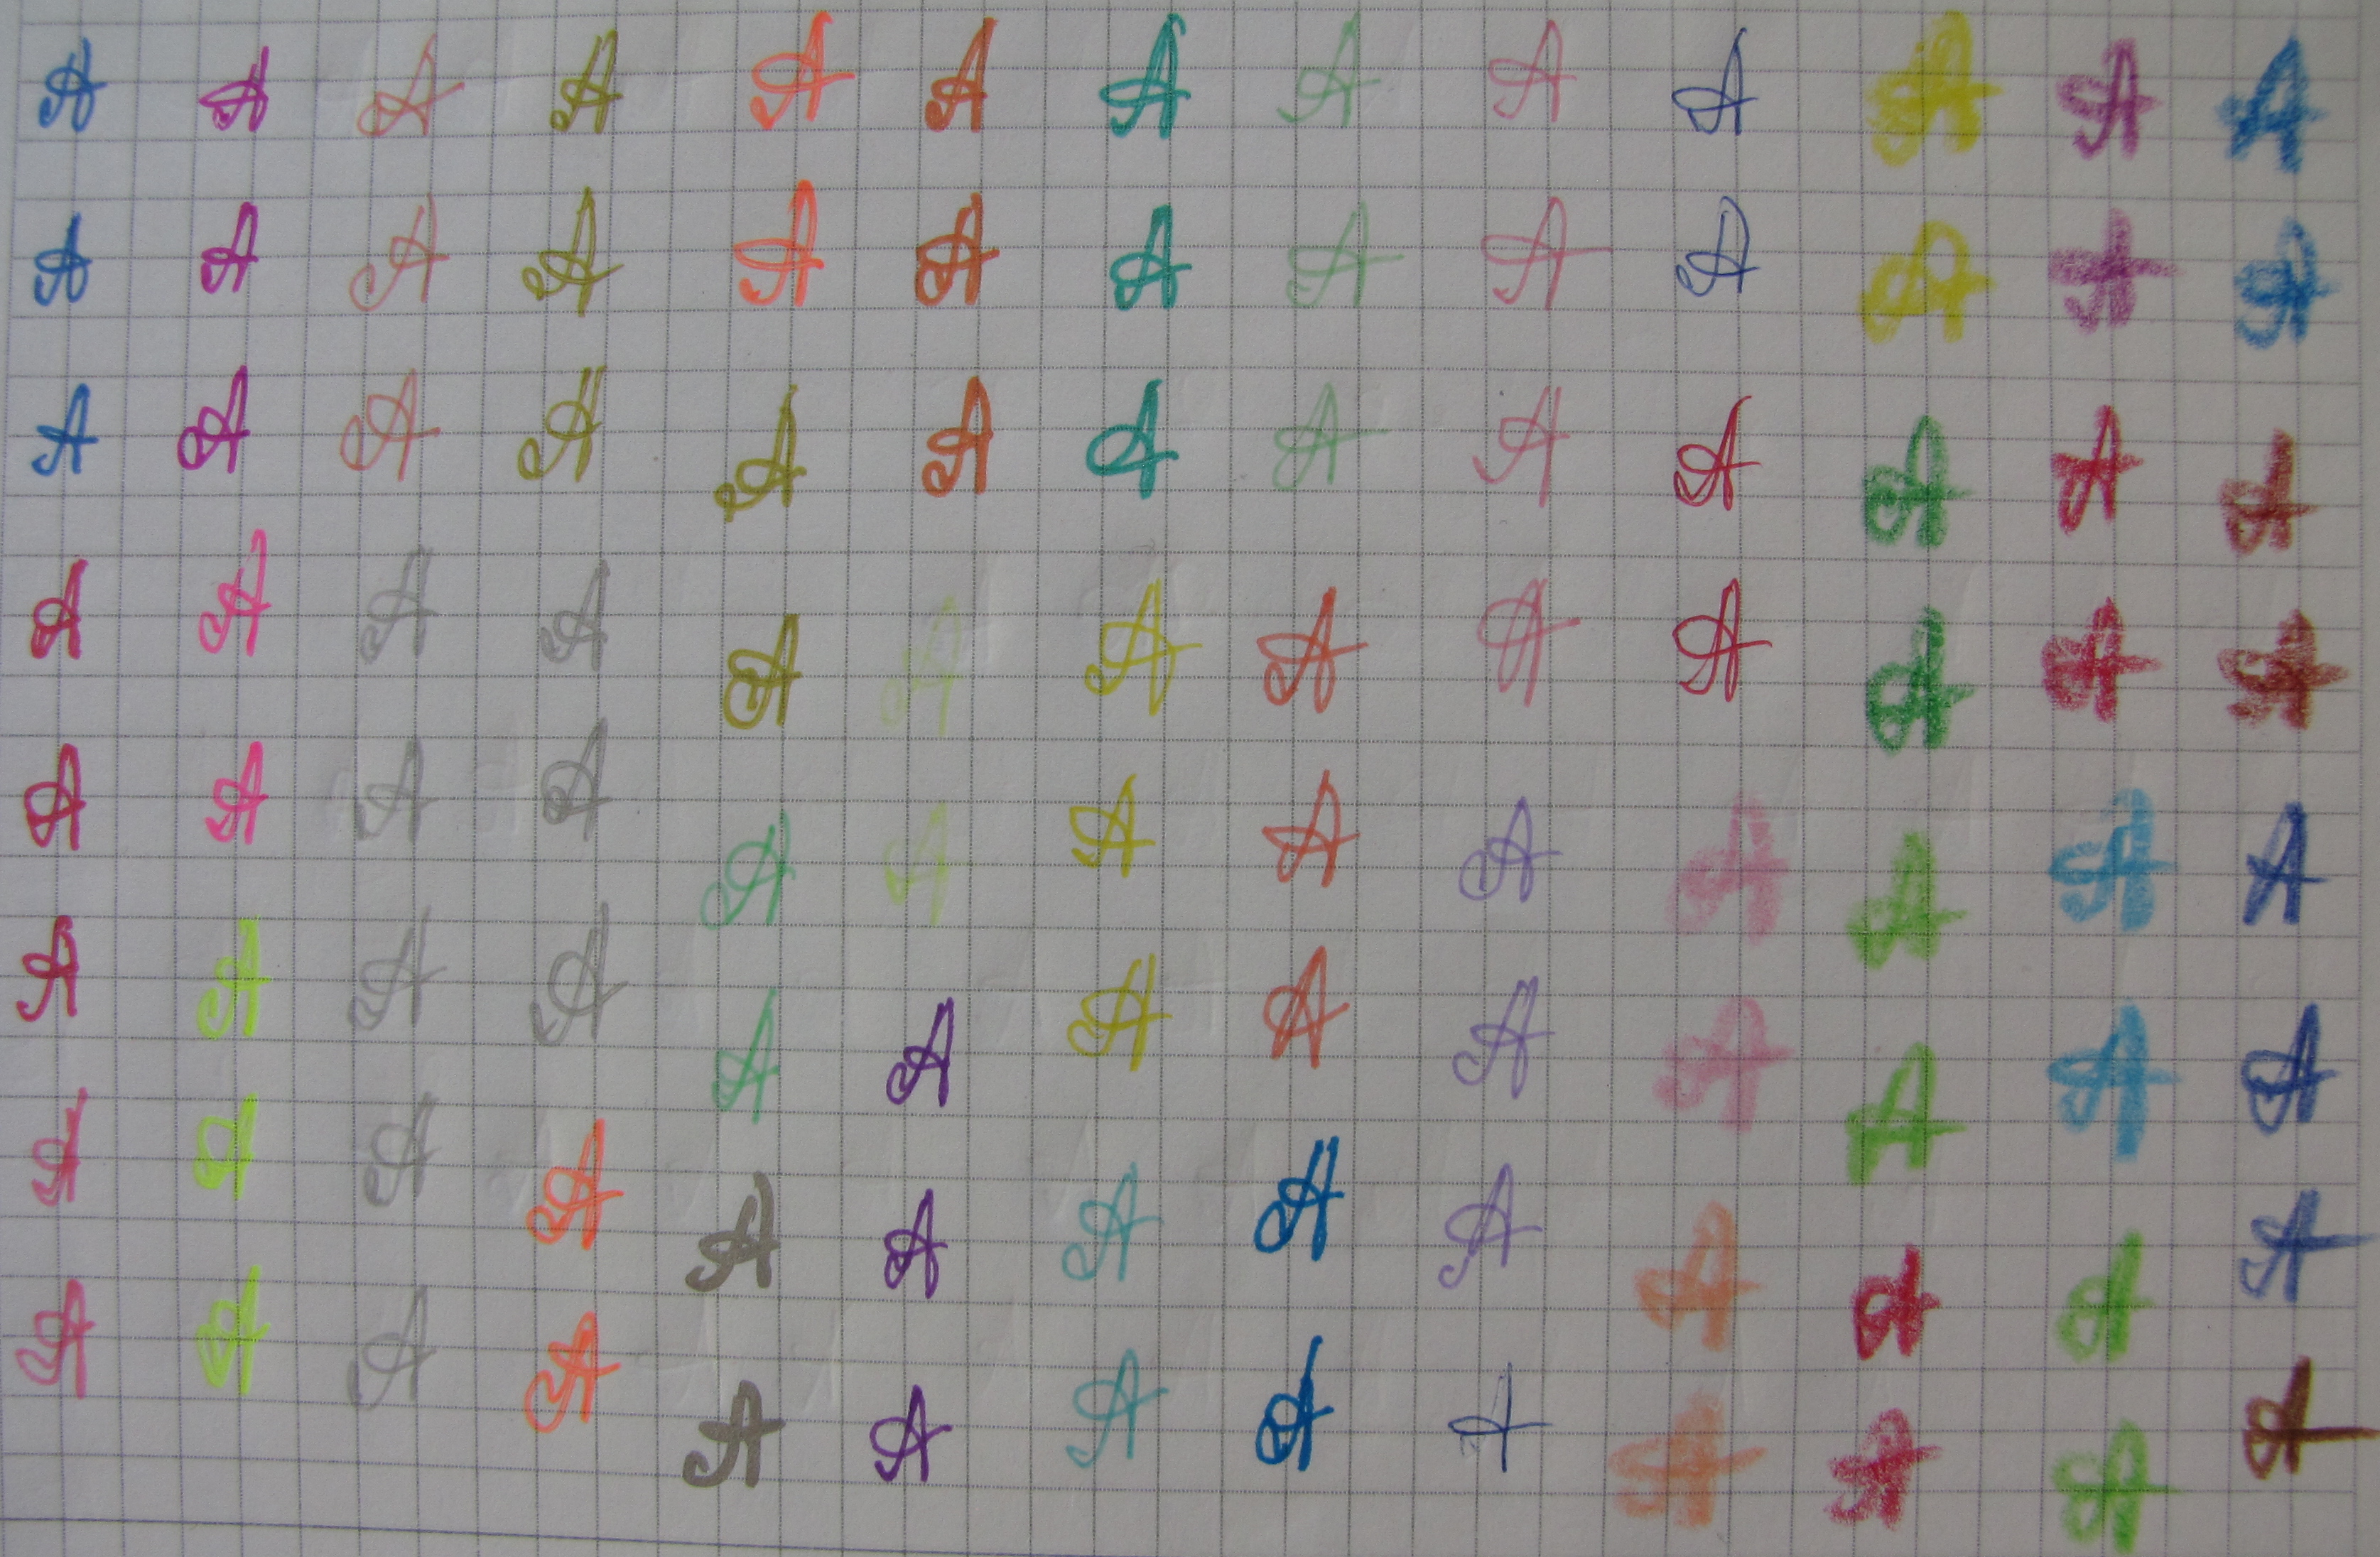 A A A A A A A A A A A A A
A A A A A A A A A A A A A
A A A A A A A A A A A A A
A A A A A A A A A A A A A
A A A A A A A A A A A A A
A A A A A A A A A A A A A
A A A A A A A A A A A A A
A A A A A A A A A A A A A